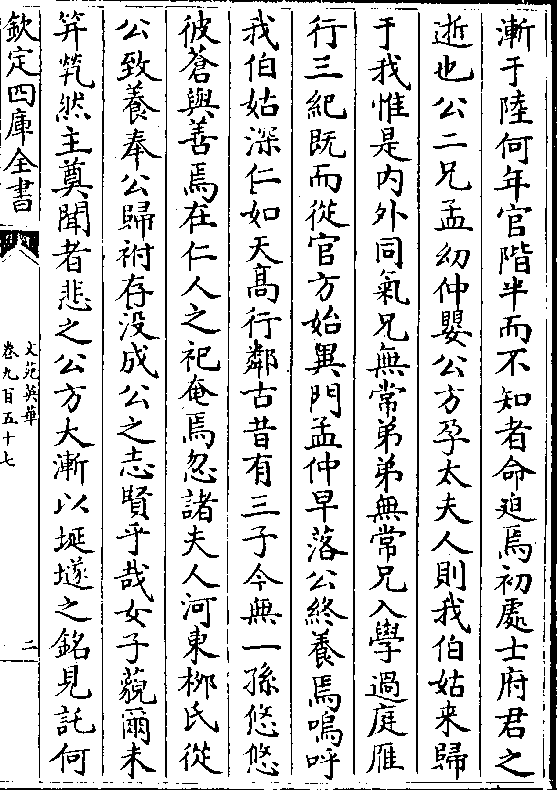 漸于陸何年官階半而不知者命迫焉初處士府君之
逝也公二兄孟幼仲嬰公方孕太夫人則我伯姑来歸
于我惟是内外同氣兄無常弟弟無常兄入學過庭雁
行三紀既而從官方始異門孟仲早落公終養焉嗚呼
我伯姑深仁如天髙行鄰古昔有三子今無一孫悠悠
彼蒼與善焉在仁人之祀奄焉忽諸夫人河東栁氏從
公致養奉公歸祔存没成公之志賢乎哉女子藐爾未
笄煢然主奠聞者悲之公方大漸以埏墜之銘見託何
欽定四庫全書
文苑英華
卷九百五十七
二